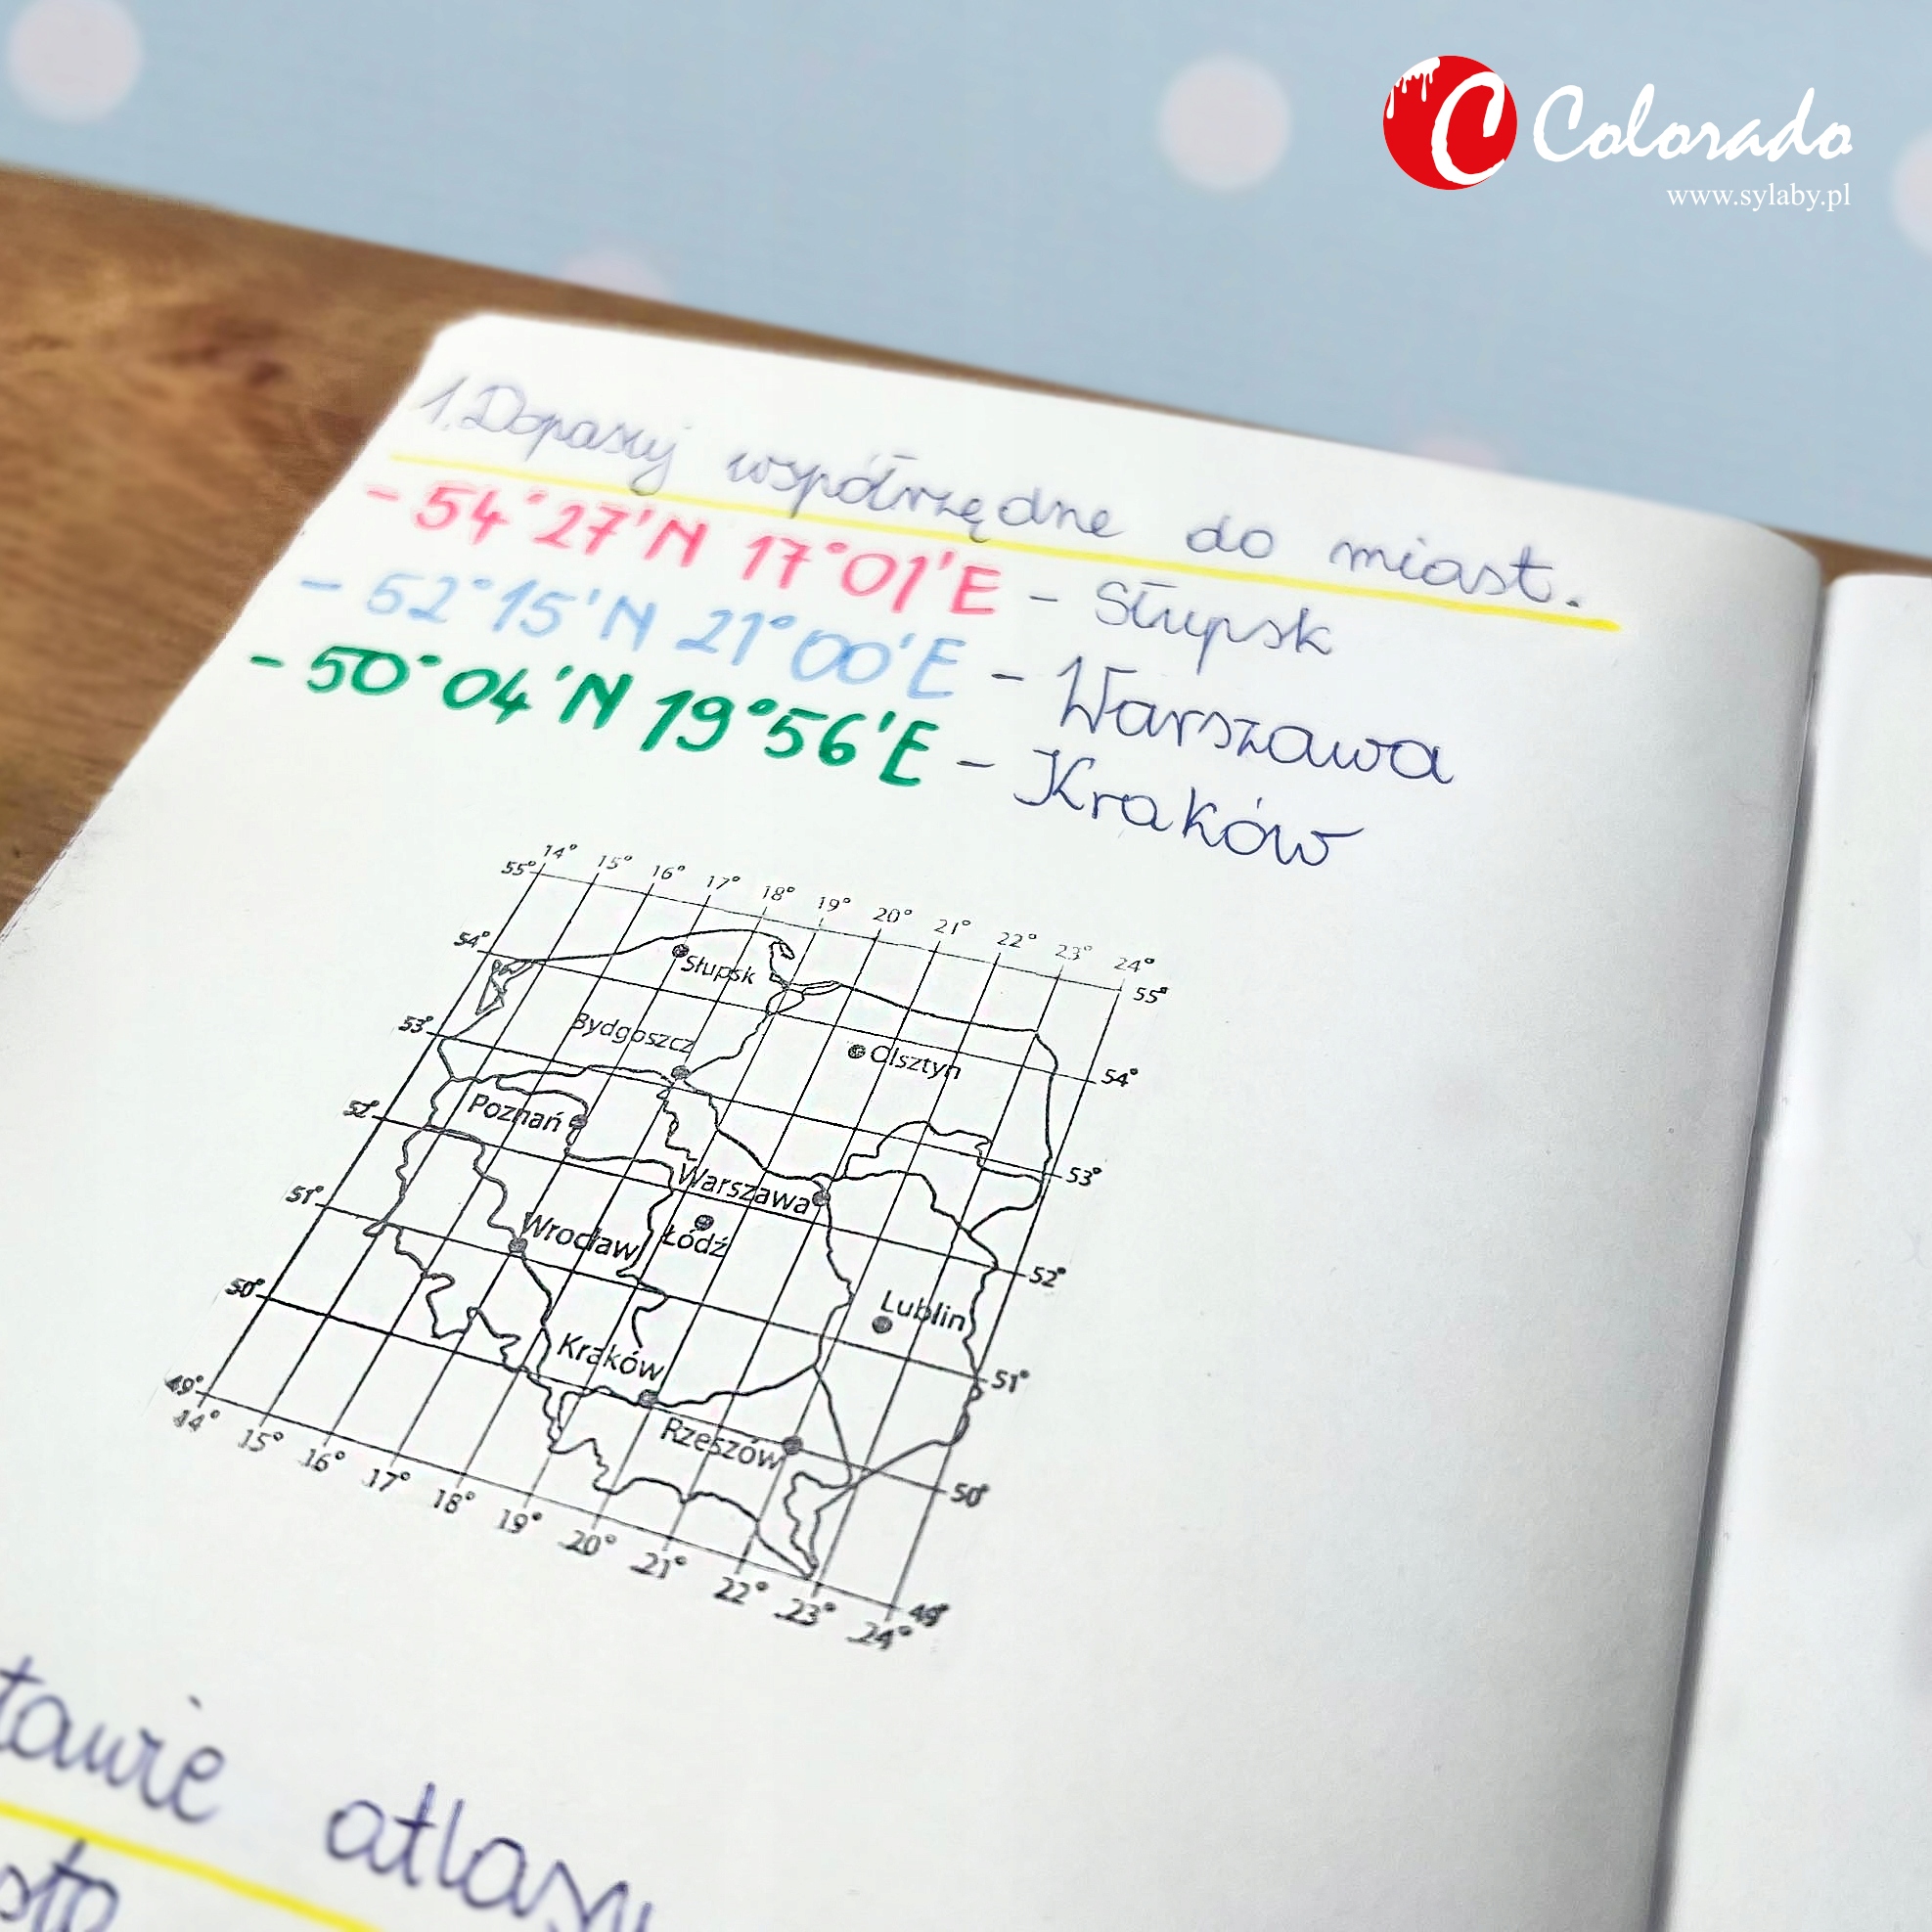 Colorado
www.sylaby.pl
1. Dopasuj współrzędne do miast.
- 54°27'N 17°01'E - Słupsk
- 52°15'N 21°00'E - Warszawa
- 50°04'N 19°56'E - Kraków
14° 15° 16° 17° 18° 19° 20° 21° 22° 23° 24°
55° 55°
54°
Słupsk
Bydgoszcz
53°
Olsztyn
54°
52°
Poznań
Warszawa
53°
51°
Wrocław
Łódź
52°
50°
Lublin
Kraków
51°
49°
Rzeszów
50°
49°
14° 15° 16° 17° 18° 19° 20° 21° 22° 23° 24°
tawie atlasu